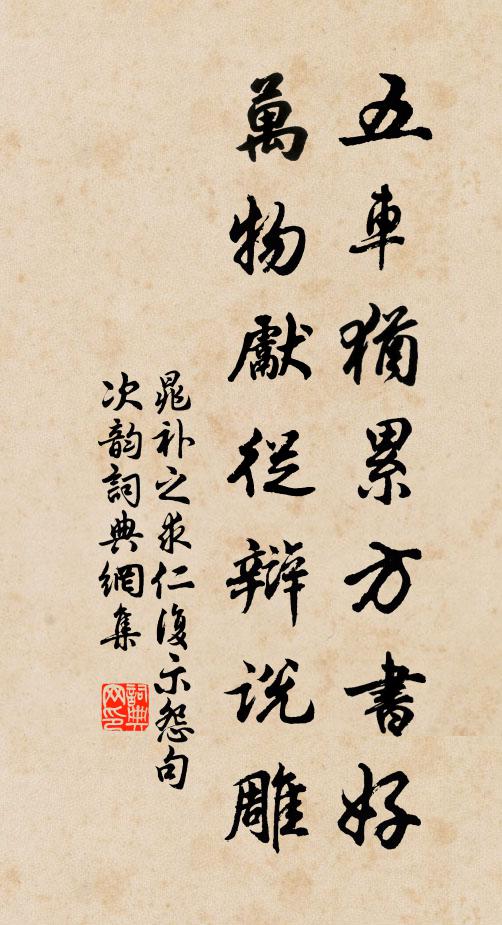 五車猶累方書好
萬物獻從辯說雕
晁补之求仁復示怨句
次韵詞典網集
詞典
网印